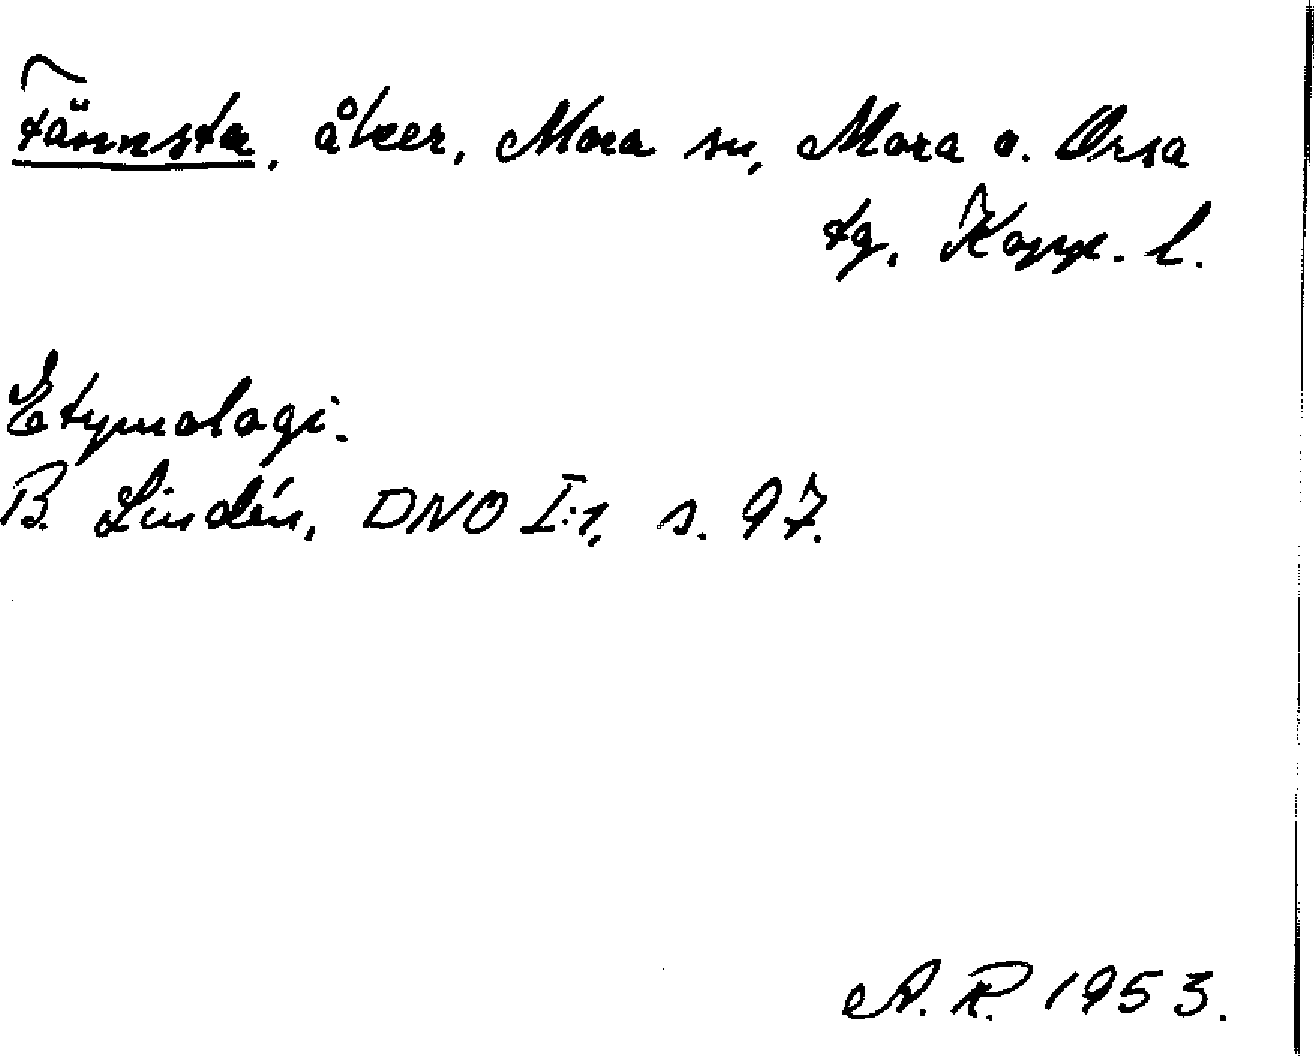 Tännsta, åker, Mora sn, Mora o. Orsa
tg, Kopp. l.
Etymologi.
B. Lindén, DNO I:1, s. 97.
A. R. 1953.